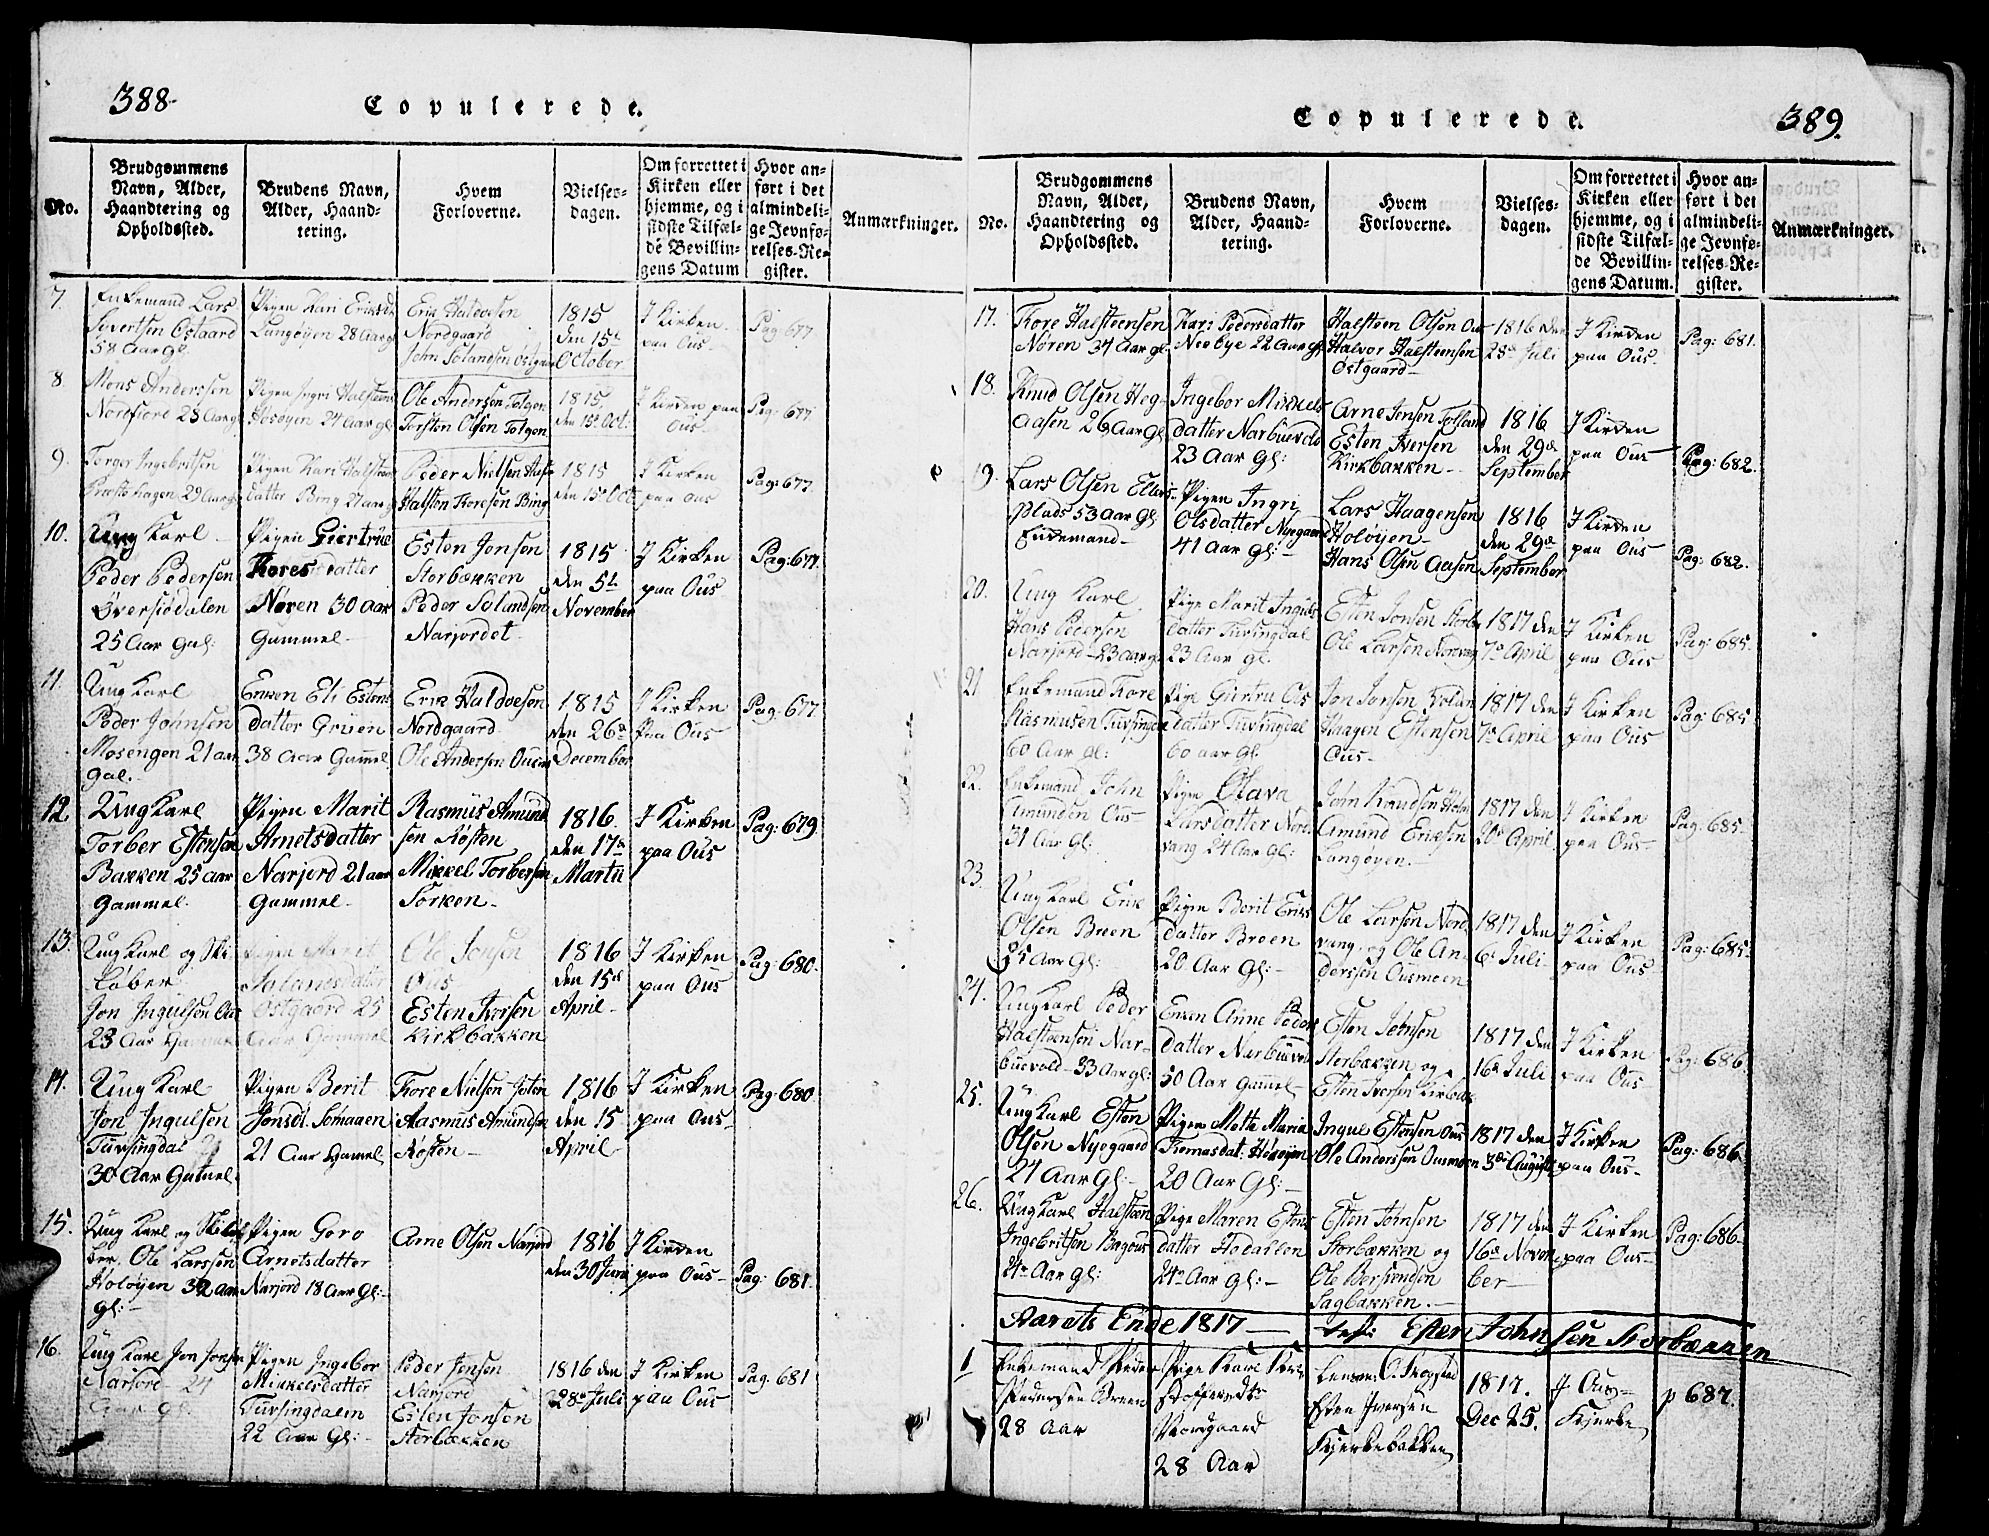 388.
Copulerede.
No.
Brudgommens Navn, Alder, Haandtering og Opholdssted.
Brudens Navn, Alder, Haandtering.
Hvem Forloverne.
Vielses-dagen.
Om forrettet i Kirken eller hjemme, og i sidste Tilfælde Bevillingens Datum
Hvor anført i det almindelige Jevnførelses-Register.
Anmærkninger.
7.
Enkemand Lars
Sivertsen Østgaard
58 Aar gl
Pigen Kari Eriksdr
Langøyen 28 Aar gl
Erik Haldosen
Nordgaard
John Solandsen Østgaard
1815
den 15de
October
I Kirken
paa Ous
Pag 677
8
Mons Anderssen
Nordfiore 28 Aar gl
Pigen Ingri Halsteens
24 Aar gl
Ole Andersen Tolgen
Torsten Olsen Tolgen
1815
den 15de Oct:
I Kirken paa
Ous
Pag: 677
9.
Torger Ingebritsen
29 Aar gl
Pigen Kari Halsteens
datter Bing 27 aar gl
Peder Nielsen
Halsten Toresen Bing
1815
den 15de Oct
I Kirken
paa Ous
Pag: 677
10.
Ung Karl
Peder Pedersen
Øversiødalen
25 Aar Gal:
Pigen Giertrue
Toresdatter
Nøren 30 Aar
Gammel
Esten Jonsen
Storbækken
Peder Solandsen
Narjordet
1815
den 5te
November
I Kirken
paa Ous
Pag: 677.
11.
Ung Karl
Peder Johnsen
Mosengen 21 aar
Gal.
Enken Eli Estens
datter Grüen
38 Aar Gammel
Erik Haldosen
Nordgaard
Ole Andersen Ousmoen
1815
den 26de
December
I Kirken
Paa Ous
Pag: 677
12.
Ung Karl
Torber Estensen
Bakken 25 aar
Gammel.
Pigen Marit
Arnetsdatter
Narjord 21 aar
Gammel
Rasmus Amund
sen Røsten
Mikkel Torbersen
Torken
1816.
den 17de
Martii
I Kirken
paa Ous
Pag: 679
13
Ung Karl og Ski
løber
Jon Ingulsen Ous
23 Aar Gammel
Pigen Marit
Solansdatter
Østgaard 25
Aar Gammel
Ole Jonsen
Ous
Esten Iversen
Kirkbakken
1816
den 15de
April
I Kirken
paa Ous
Pag: 680.
14.
Ung Karl
Jon Ingulsen
Tufsingdal
30 Aar Gammel
Pigen Berit
Jonsdt. Sømaaen
21 Aar Gammel
Tore Nielsen
Rasmus Amundsen
Røsten
1816
den 15
April
I Kirken
paa Ous
Pag: 680
15.
Ung Karl og Skilø
ber Ole Larssen
Holøyen 32 aar
gl:
Pigen Goro
Arnetsdatter
Narjord 18 Aar Gl:
Arne Olsen Narjord
1816
den 30 Juni
I Kirken
paa Ous
Pag: 681.
16.
Ung Karl Jon Jonsen
Narjord 24
Aar Gl.
Pigen Ingebor
Mikkelsdatter
Tufsingdalen
22 Aar Gl:
Peder Jonsen
Narjord
Esten Jonsen
Storbækken
1816 den
28de Juli
I Kirken
paa Ous
Pag: 681
389.
Copulerede.
No.
Brudgommens Navn, Alder, Haandtering og Opholdssted.
Brudens Navn, Alder, Haandtering.
Hvem Forloverne.
Vielses-dagen.
Om forrettet i Kirken eller hjemme, og i sidste Tilfælde Bevillingens Datum.
Hvor anført i det almindelige Jevnførelses-Register.
Anmærkninger.
17.
Tore Halsteensen
Nøren 34 Aar gl:
Kari Pedersdatter
Neebye 22 Aar gl
Halsteen Olsen Ous
Halvor Halsteensen
Østgaard
1816 den
28de Juli
I Kirken
paa Ous
Pag: 681.
18.
Knud Olsen Heg-
aasen 26 Aar Gl
Ingebor Mikkels
datter Narbuevold
23 Aar Gl:
Arne Jensen Tolland
Esten Iversen
Kirkbakken
1816
den 29de
September
I Kirken
paa Ous
Pag: 682.
9.
Lars Olsen
Plads 53 Aar Gl
Enkemand
Pigen Ingri
Olsdatter Nyegaard
41 Aar Gl:
Lars Haagensen
Holøyen
Hans Olsen Aasen
1816
den 29de
September
I Kirken
paa Ous
Pag: 682.
20.
Ung Karl
Hans Pedersen
Narjord 23 aar gl
Pige Marit Inguls
datter Tufsingdal
23 Aar gl.
Esten Jonsen Storbæ
Ole Larsen Nordvang
1817 den
7de April
I Kirken
paa Ous
Pag: 685.
21
Enkemand Tore
Rasmusen Tufsingda
60 Aar gl:
Pige Giertru Ols
datter Tufsingdal
60 aar gl
Jon Jonsen Kolden
Haagen Estensen
Ous
1817 den
7de April
I Kirken
paa Ous
Pag: 685
22.
Enkemand John
Amundsen Ous
31 Aar Gl:
Pigen Olava
Larsdatter Nord
vang 24 Aar Gl:
John Knudsen
Amund Eriksen
Langøyen.
1817 den
20de April
I Kirken
paa Ous
Pag: 685.
23.
Ung Karl Erik
Olsen Breen
25 Aar Gl:
Pigen Berit Eriks
datter Breen
20 Aar Gl:
Ole Larsen Nord
vang, og Ole An-
dersen Ousmoen
1817 den
6te Juli
I Kirken
paa Ous
Pag: 685
24.
Ung Karl Peder
Halsteensen Nar-
buevold 33 Aar gl:
Enken Anne Peders
datter Narbuevol
50 Aar Gammel
Esten Johnsen
Storbækken og
Esten Iversen Kirkbak
1817 den
16de Juli
I Kirken
paa Ous
Pag: 686
25.
Ung Karl Esten
Olsen Nyegaard
21 Aar Gl:
Pigen Mette Maria
Tomasdat: Holøyen
20 Aar Gl:
Ingul Estensen Ous
Ole Anderssen Ousmoen
1817 den
3die August
I Kirken
paa Ous
Pag: 686
26.
Ung Karl Halsteen
Ingebritsen
24 Aar gl:
Pige Maren Estens
datter Hodalen
24 Aar gl:
Esten Johnsen
Storbækken og
Ole Bersvendsen
Sagbakken.
1817 den
16de Novem
ber
I Kirken
paa Ous
Pag: 686
Aarets Ende 1817 test: Esten Johnsen Storbækken
1
Enkemand Peder
Pedersen Breen
28 Aar
Pige Kari
Stoffersdtr
Norgaard
28 Aar
Esten Iversen
Kjerkebakken
1817.
Dec 25.
I Ous
Kjerke
p 687.